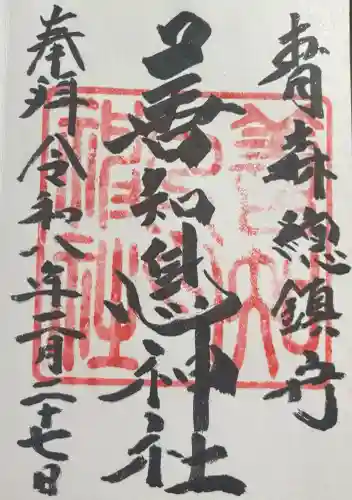 青森總鎮守
善知鳥神社
奉拝 令和八年二月二十七日